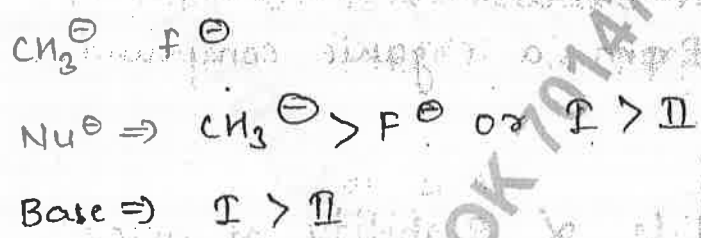 CH₃⊖ F⊖
Nu⊖ ⇒ CH₃⊖ > F⊖ or I > II
Base ⇒ I > II